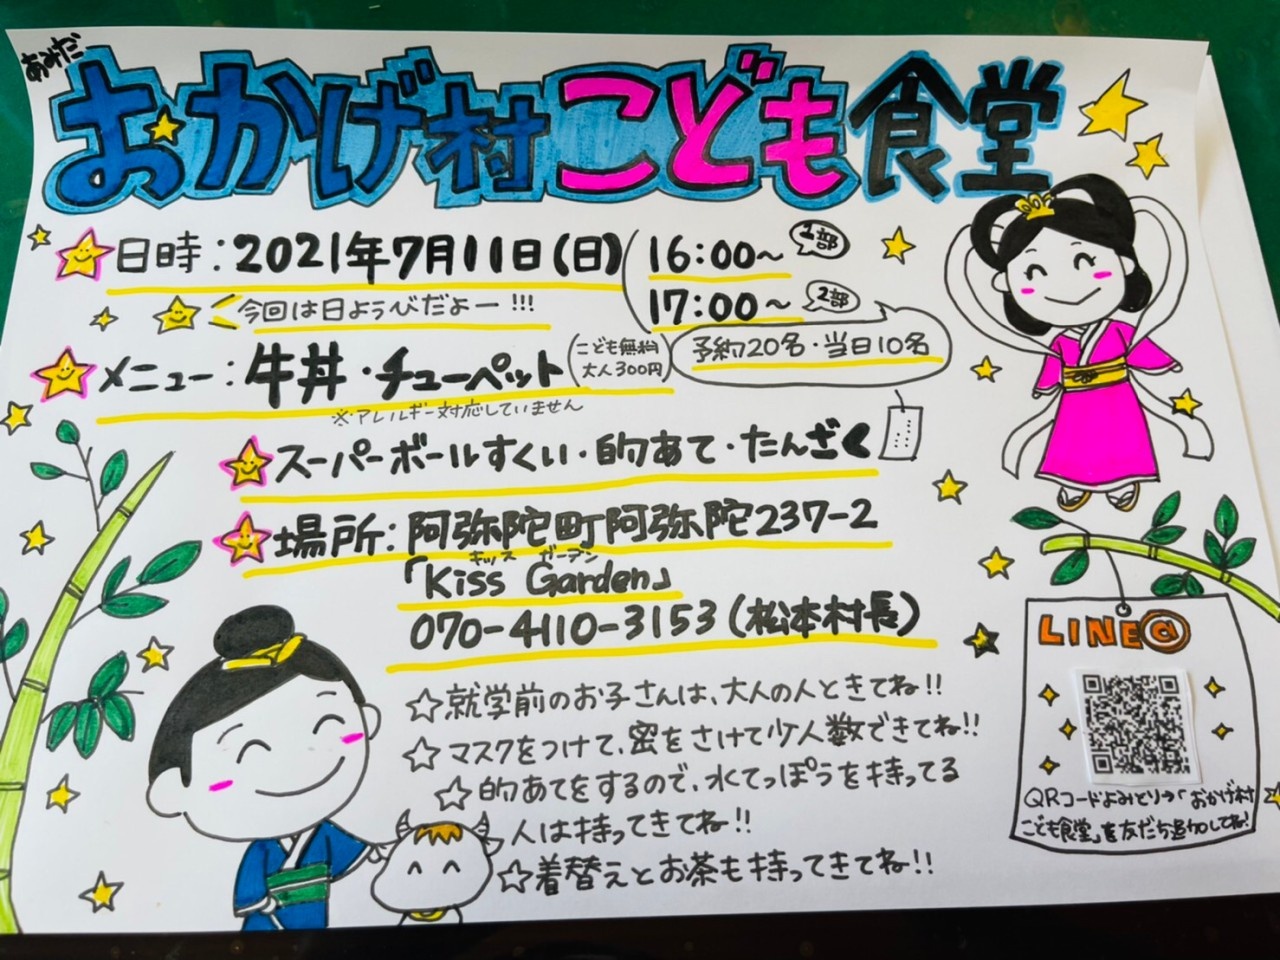 あみだ
おかげ村こども食堂
日時：2021年7月11日(日)
16:00～ 1部
17:00～ 2部
今回は日ようびだよー!!!
予約20名・当日10名
メニュー：牛丼・チューペット
こども無料
大人300円
※アレルギー対応していません
スーパーボールすくい・的あて・たんざく
場所：阿弥陀町阿弥陀237-2
キッス ガーデン
「Kiss Garden」
070-4110-3153(松本村長)
☆就学前のお子さんは、大人の人ときてね!!
☆マスクをつけて、密をさけて少人数できてね!!
☆的あてをするので、水てっぽうを持ってる
人は持ってきてね!!
☆着替えとお茶も持ってきてね!!
LINE@
QRコードよみとり→「おかげ村
こども食堂」を友だち追加してね!